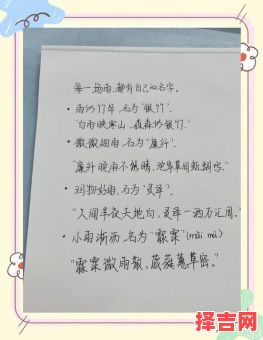 每一场雨,都有自己的名字。
· 雨似竹竿,名为“银竹”.
“白雨映寒山,森森似银竹.”
· 微微细雨,名为“廉纤”.
“廉纤晚雨不能晴,池岸草间蚯蚓鸣.”
· 润物好雨,名为“灵泽”.
“入阁半夜天地白,灵泽一洒万汇周.”
· 小雨渐沥,名为“霡霂”(mài mù)
“霡霂微雨散,葳蕤蕙草密。”
择吉网
zejiwang.com